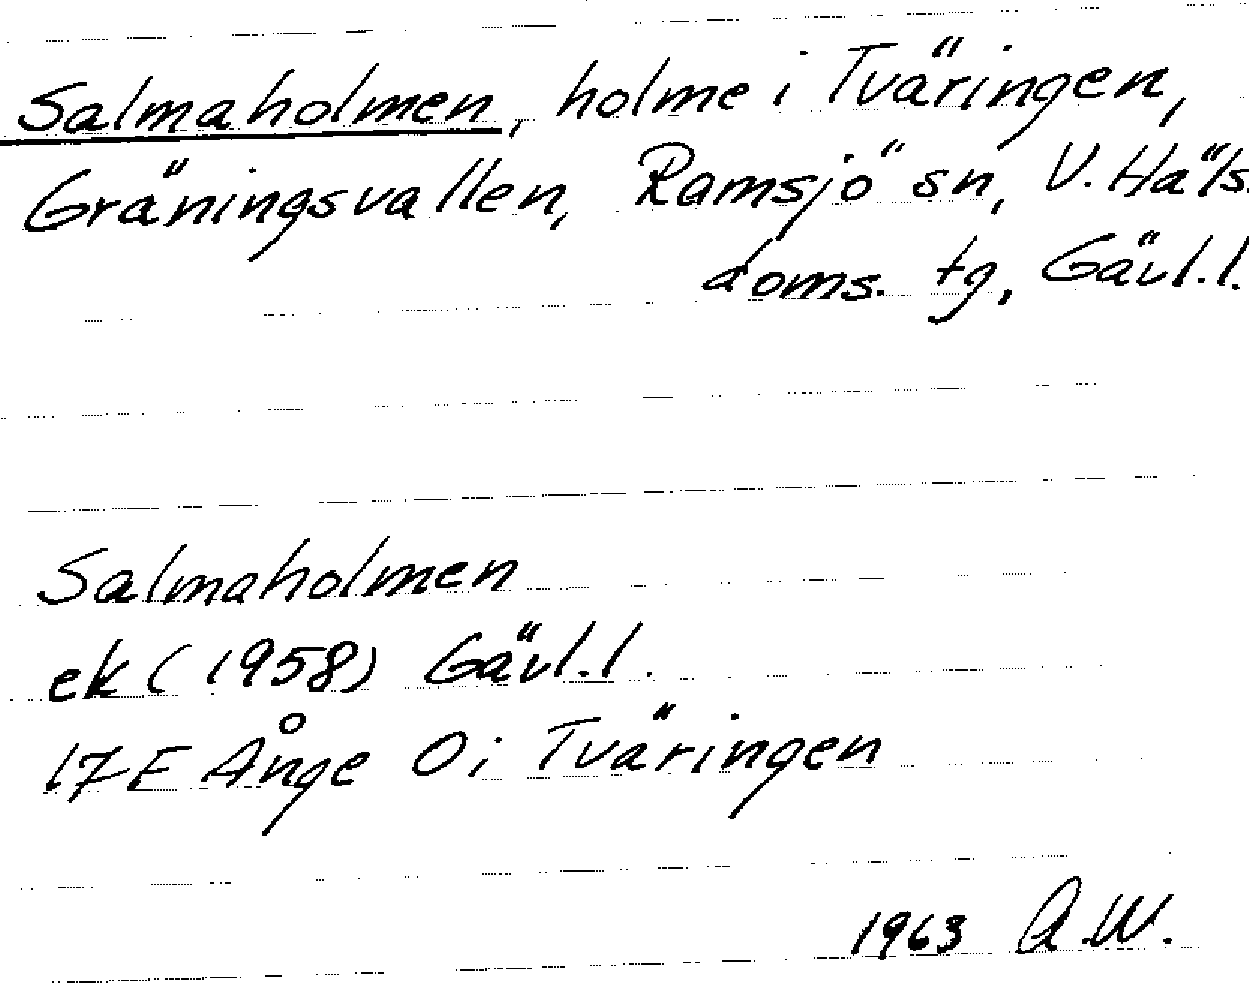 Salmaholmen, holme i Tväringen,
Gräningsvallen, Ramsjö sn, V. Häls.
doms. tg, Gävl.l.
Salmaholmen
ek (1958) Gävl.l.
17E Ånge Ö i Tväringen
1963 A.W.